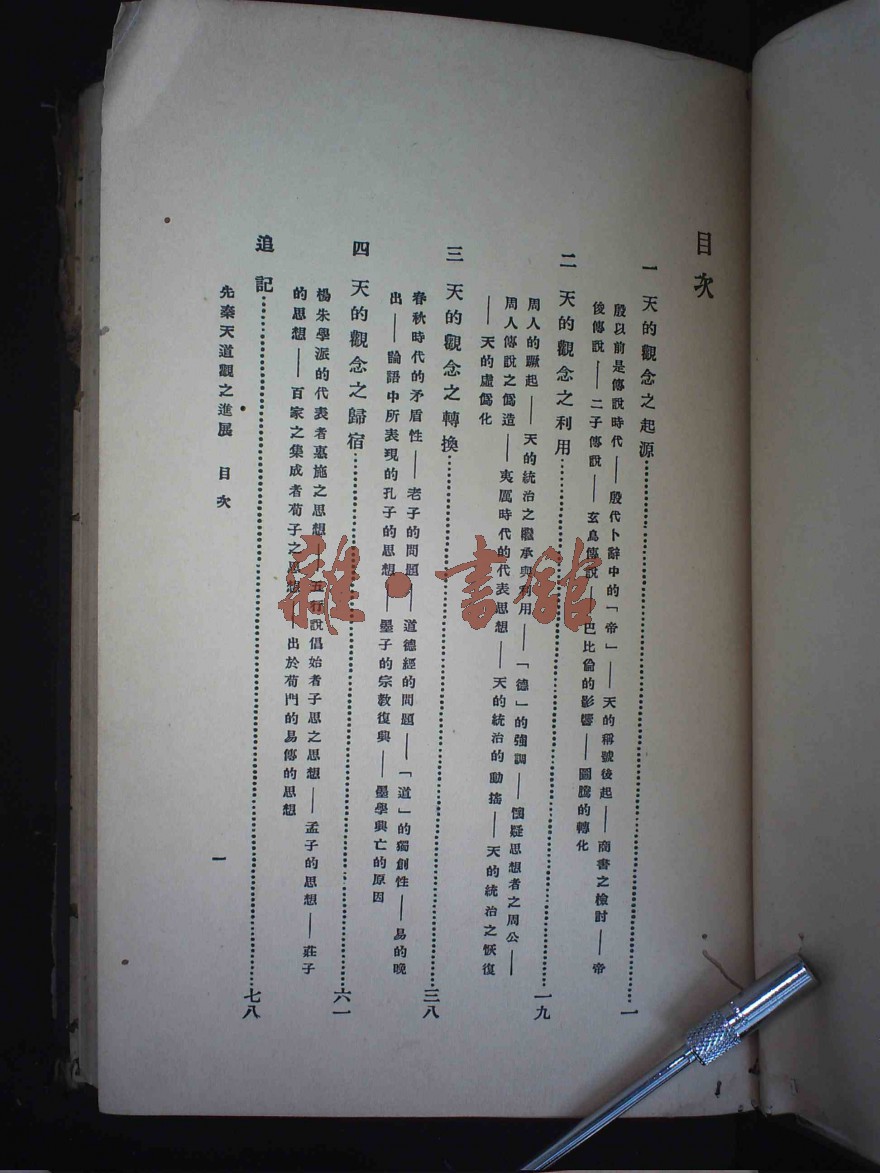 目次
一 天的觀念之起源……一
殷以前是傳說時代——殷代卜辭中的「帝」——天的稱號後起——商書之檢討——帝
俊傳說——二子傳說——玄鳥傳說——巴比倫的影響——圖騰的轉化
二 天的觀念之利用……一九
周人的蹶起——天的統治之繼承與利用——「德」的強調——懷疑思想者之周公——
周人傳說之僞造——夷厲時代的代表思想——天的統治的動搖——天的統治之恢復
——天的虛僞化
三 天的觀念之轉換……三八
春秋時代的矛盾性——老子的問題——道德經的問題——「道」的獨創性——易的晚
出——論語中所表現的孔子的思想——墨子的宗教復興——墨學興亡的原因
四 天的觀念之歸宿……六一
楊朱學派的代表者惠施之思想——五行說倡始者子思之思想——孟子的思想——莊子
的思想——百家之集成者荀子之思想——出於荀門的易傳的思想
追記……七八
先秦天道觀之進展 目次
一
雜·書館